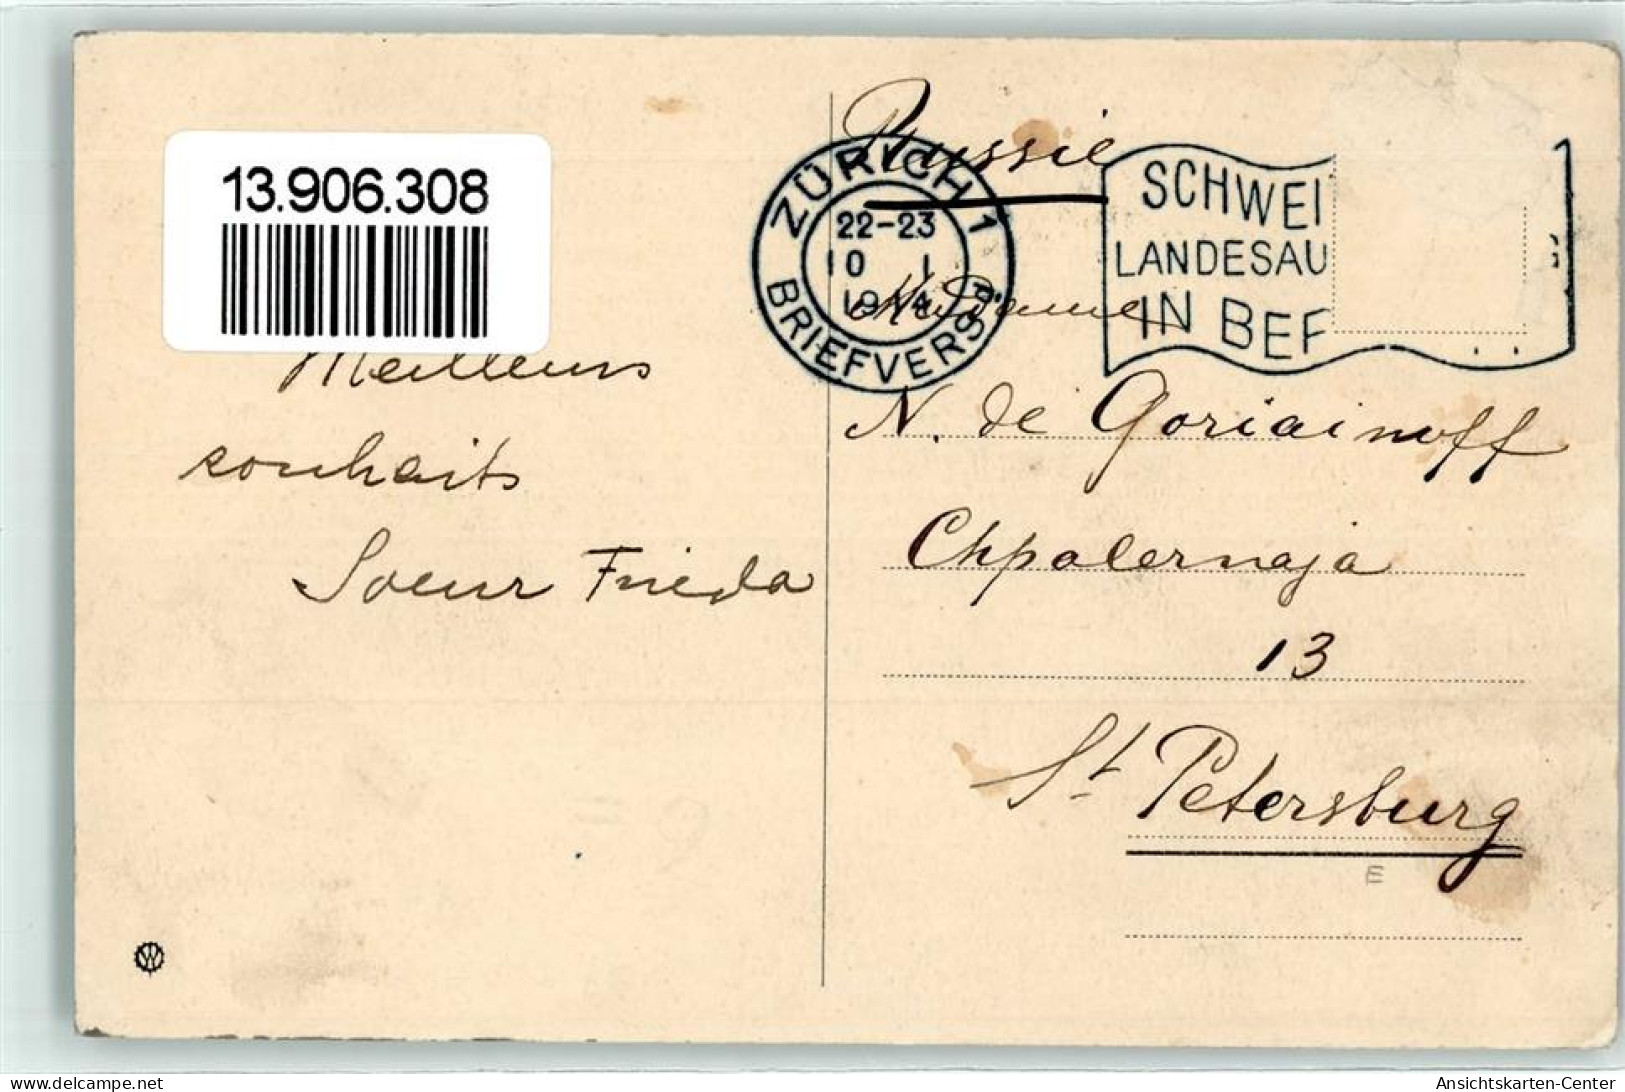 13.906.308
Meilleurs
souhaits
Soeur Frieda
Russie
ZÜRICH 1
22-23
10 I
1914
BRIEFVERSD.
SCHWEI
LANDESAU
IN BE
Madame
N. de Goriainoff
Chpalernaja
13
St Petersburg
E
W
www.delcampe.net
Ansichtskarten-Center